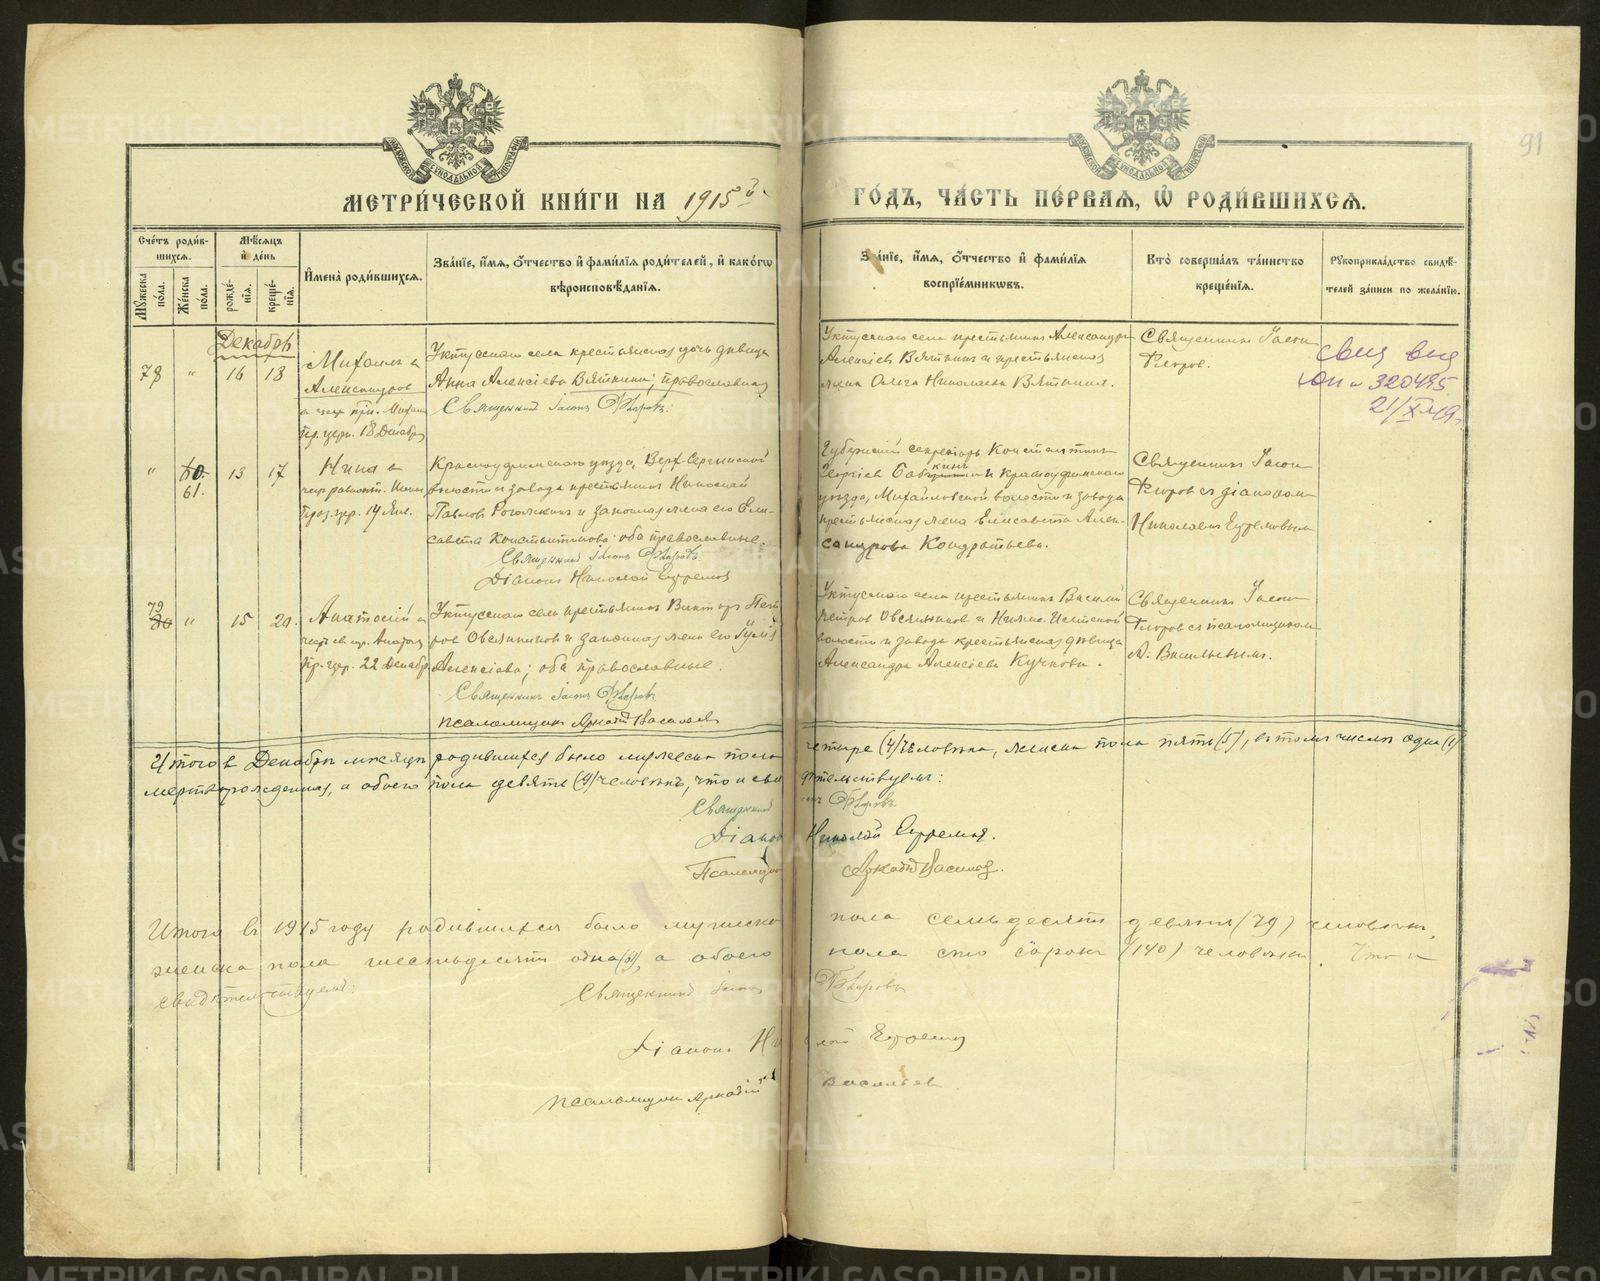 91
МЕТРИ́ЧЕСКОЙ КНИ́ГИ НА 1915й
ГО́ДЪ, ЧА́СТЬ ПЕ́РВАЯ, Ѡ РОДИ́ВШИХСЯ.
Сче́тъ роди́в-
шихся.
Мужеска по́ла.
Же́нска по́ла.
Мѣ́сяцъ
и҆ де́нь
рожде́-
нїя.
креще́-
нїя.
И҆мена̀ роди́вшихся.
Зва́нїе, и҆́мя, ѻ҆́тчество и҆ фами́лїя роди́телей, и҆ како́гѡ
вѣроисповѣ́данїя.
Зва́нїе, и҆́мя, ѻ҆́тчество и҆ фами́лїя
воспрїе́мникѡвъ.
Кто̀ соверша́лъ та́инство
креще́нїя.
Рукоприкла́дство свидѣ́-
телей за́писи по жела́нїю.
Декабрь
78 " 16 18
Михаилъ
Александров
Пр. церк. 18 Декабр
Уктусскаго села крестьянская дочь дѣвица
Анна Алексіева Вяткина; православная
Священникъ Іасонъ Ѳедоровъ.
Уктусскаго села крестьянинъ Александръ
Алексіевъ Вяткинъ и крестьянская
жена Ольга Николаева Вяткина.
Священникъ Іасонъ
Ѳеоровъ.
свид выд
ЮП № 320495
21/X 49г.
" 60. 13 17
61.
Нина
Красноуфимскаго уѣзда, Верх-Сергинской
волости и завода крестьянинъ Николай
Павловъ Рогожкинъ и законная жена его Ели-
савета Константинова; оба православные.
Священникъ Іасонъ Ѳедоровъ
Діаконъ Николай Ефремов
Губернскій секретарь Константинъ
Георгіевъ и Красноуфимскаго
уѣзда, Михайловской волости и завода
крестьянская жена Елисавета Алек-
сандрова Кондратьева.
Священникъ Іасонъ
Ѳеоровъ съ діакономъ
Николаемъ Ефремовымъ
79 " 15 20.
80
Анатолій
Пр. цер. 22 Декабр
Уктусскаго села крестьянинъ Викторъ Пет-
ровъ Овсянниковъ и законная жена его Юлія
Алексіева; оба православные.
Священникъ Іасонъ Ѳедоровъ
псаломщикъ Аркадій Васильев
Уктусскаго села крестьянинъ Василій
Петровъ Овсянников и Нижне-Исетской
волости и завода крестьянская дѣвица
Александра Алексіева Кучкова.
Священникъ Іасонъ
Ѳеоровъ съ псаломщикомъ
А. Васильевымъ.
Итого въ Декабрѣ мѣсяцѣ родившихся было мужеска пола четыре (4) человѣка, женска пола пять (5), въ томъ числѣ одна (1)
мертворожденная, а обоего пола девять (9) человѣкъ, что и свидѣтельствуемъ:
Священникъ Ѳедоровъ
Діаконъ Николай Ефремов.
Псаломщикъ Аркадій Васильев.
Итого въ 1915 году родившихся было мужска пола семьдесятъ девять (79) человѣкъ,
женска пола шестьдесят одна (61), а обоего пола сто сорокъ (140) человѣкъ. Что и
свидѣтельствуемъ:
Священникъ Іасонъ Ѳедоровъ
Діаконъ Николай Ефремов
псаломщикъ Аркадій Васильев.
METRIKI.GASO-URAL.RU